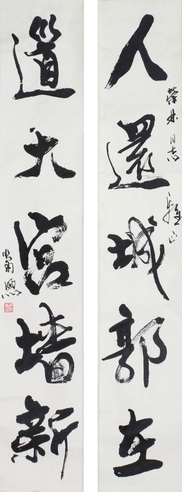 人還城郭在
道大宮墙新